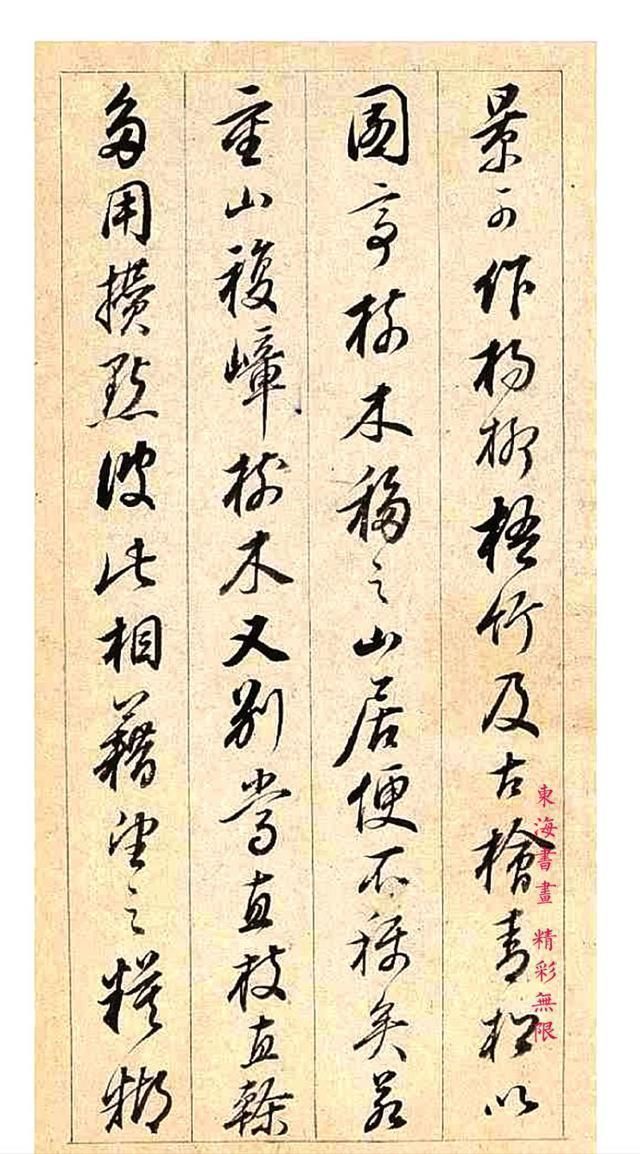 景可作楊柳梧竹及古檜青松以
園亭樹木移之山居便不称矣若
重山複嶂樹木又别當直枝直幹
多用攢點彼此相藉望之糢糊
東海書畫 精彩無限